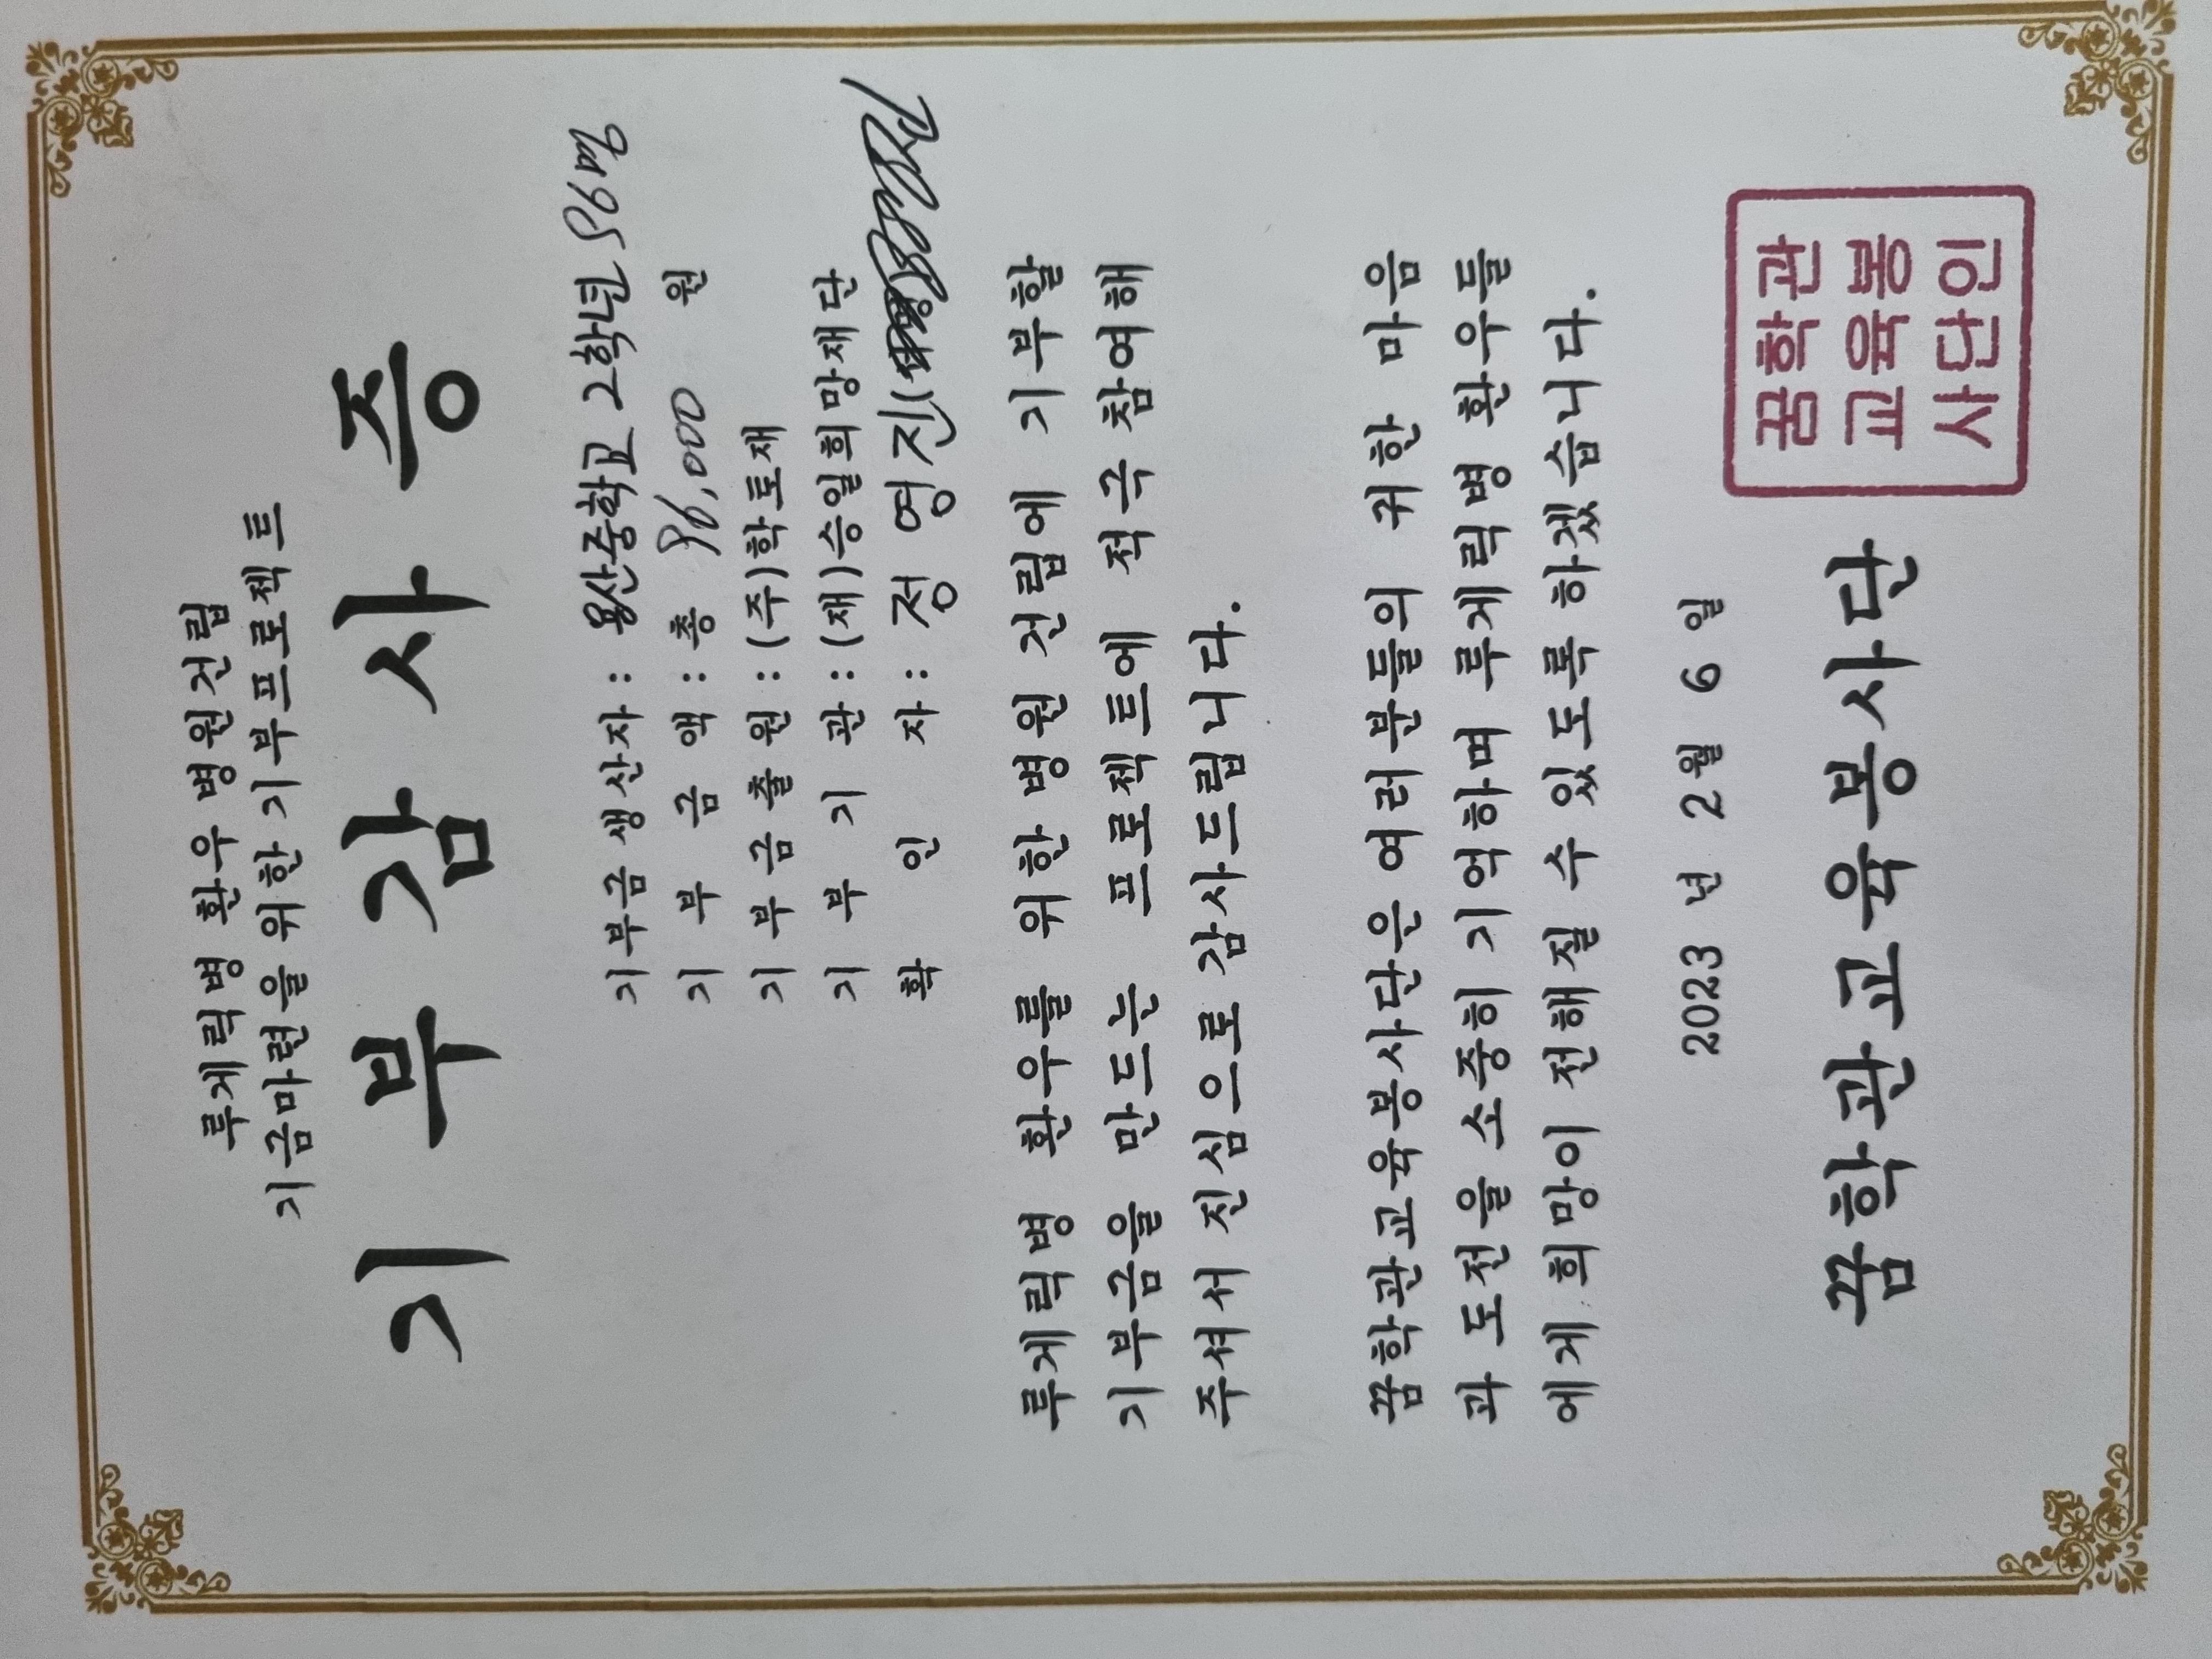 루게릭병 환우 병원건립
기금마련을 위한 기부프로젝트
기 부 감 사 증
기부금생산자 : 용산중학교 2학년 96명
기 부 금 액 : 총 96,000 원
기부금출원 : (주)학토재
기 부 기 관 : (재)승일희망재단
확 인 자 : 정 영 진(
루게릭병 환우를 위한 병원 건립에 기부할
기부금을 만드는 프로젝트에 적극 참여해
주셔서 진심으로 감사드립니다.
꿈학관교육봉사단은 여러분들의 귀한 마음
과 도전을 소중히 기억하며 루게릭병 환우들
에게 희망이 전해질 수 있도록 하겠습니다.
2023 년 2월 6 일
꿈학관교육봉사단
꿈학관
교육봉
사단인